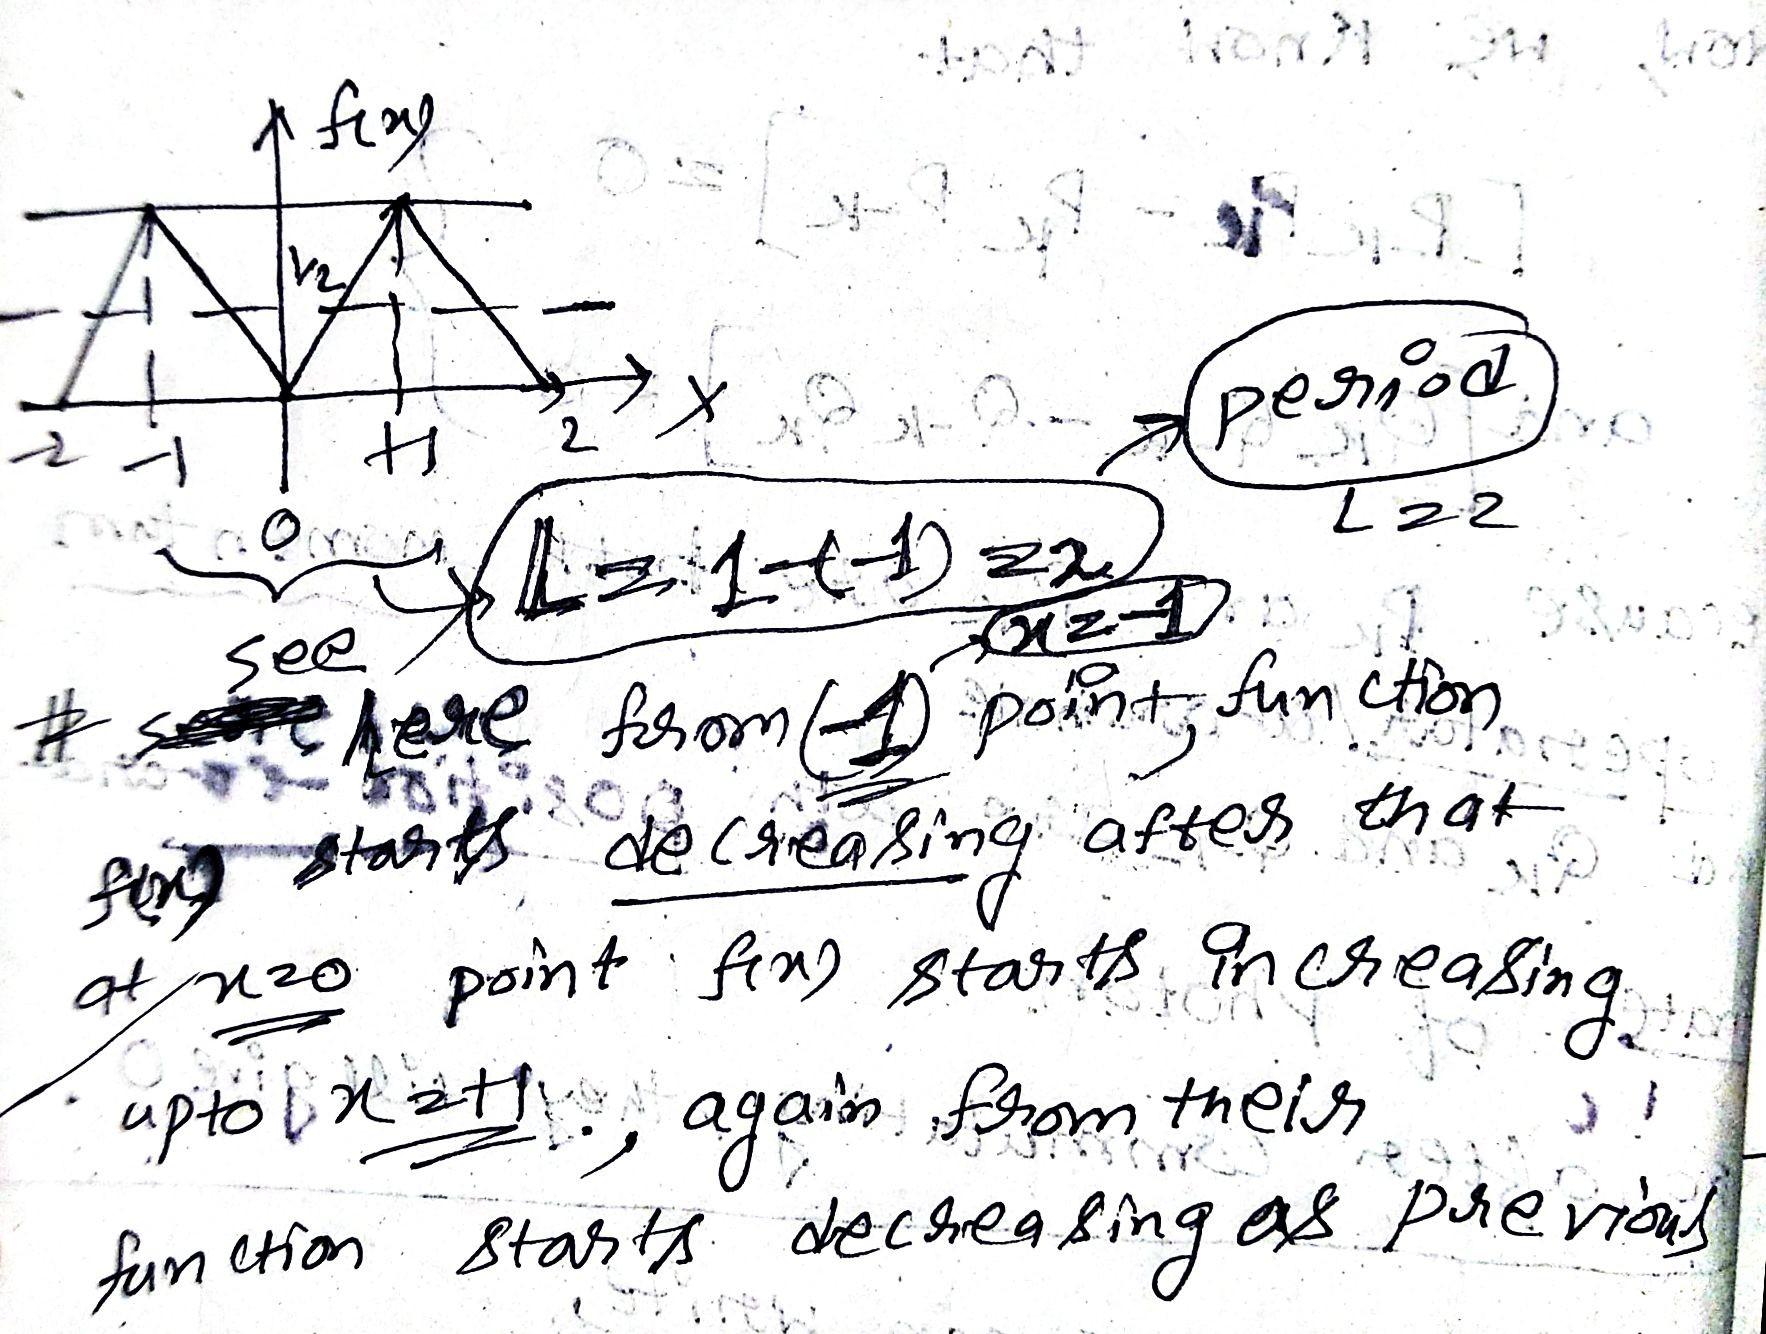 f(x)
1/2
-2 -1 0 +1 2 X
period
L=2
L = 1-(-1) = 2
x=-1
see
# here from (-1) point, function
f(x) starts decreasing after that
at x=0 point f(x) starts increasing
upto x=+1., again from their
function starts decreasing as previous